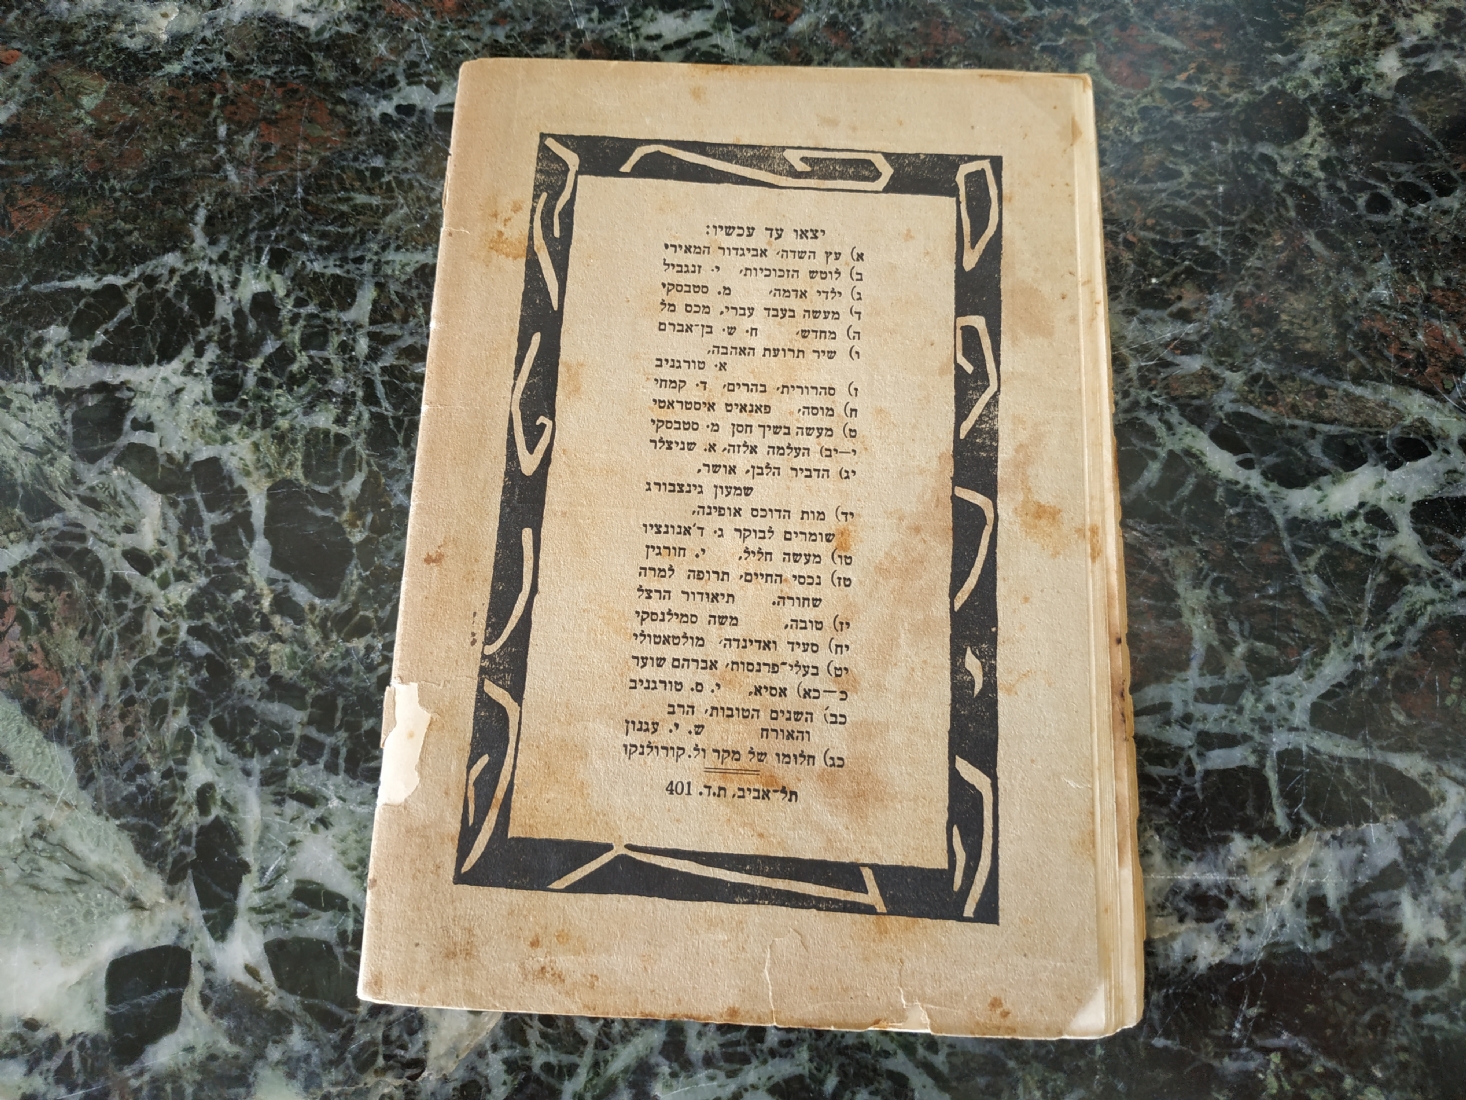 יצאו עד עכשיו:
א) עץ השדה, אביגדור המאירי
ב) לוטש הזכוכיות, י. זנגביל
ג) ילדי אדמה, מ. סטבסקי
ד) מעשה בעבד עברי, מכס מל
ה) מחדש, ח. ש. בן־אברם
ו) שיר תרועת האהבה,
א. טורגניב
ז) סהרורית, בהרים, ד. קמחי
ח) מוסה, פאנאיט איסטראטי
ט) מעשה בשיך חסן מ. סטבסקי
י—יב) העלמה אלזה, א. שניצלר
יג) הדביר הלבן, אושר,
שמעון גינצבורג
יד) מות הדוכס אופינה,
שומרים לבוקר ג. ד'אנונציו
טו) מעשה חליל, י. חורגין
טז) נכסי החיים, תרופה למרה
שחורה. תיאודור הרצל
יז) טובה, משה סמילנסקי
יח) סעיד ואדינדה, מולטאטולי
יט) בעלי־פרנסות, אברהם שוער
כ—כא) אסיא, י. ס. טורגניב
כב) השנים הטובות, הרב
והאורח ש. י. עגנון
כג) חלומו של מקר ול. קורולנקו
תל־אביב, ת.ד. 401